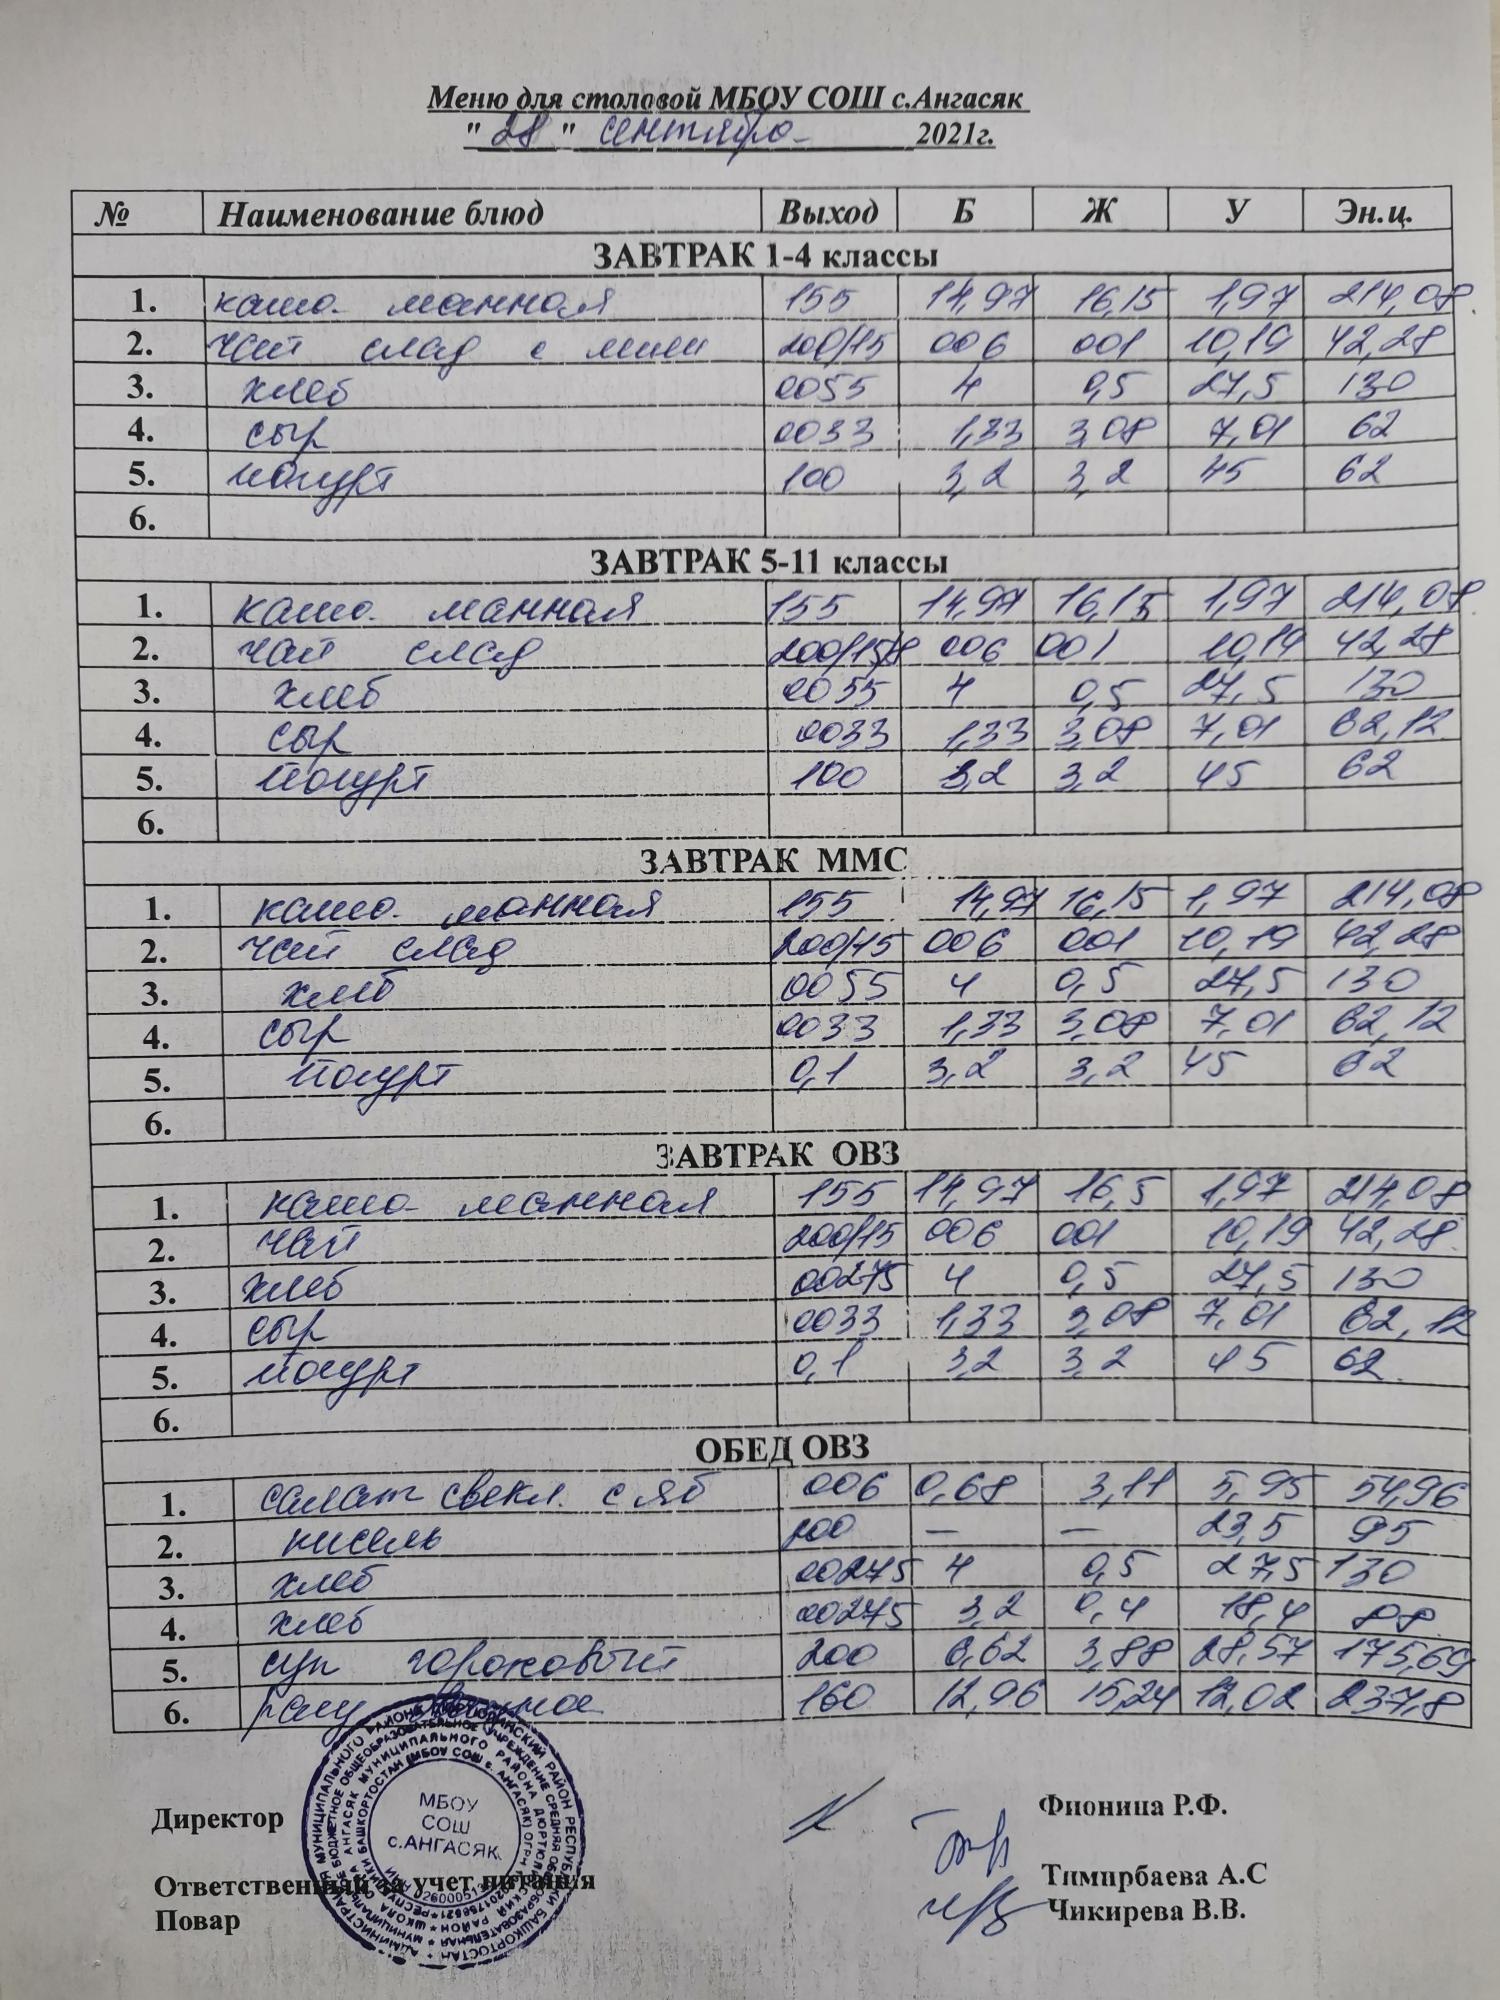 Меню для столовой МБОУ СОШ с.Ангасяк
" 28 " сентября 2021г.
№ Наименование блюд Выход Б Ж У Эн.ц.
ЗАВТРАК 1-4 классы
1. каша манная 155 14,97 16,15 1,97 214,08
2. чай слад с лим 200/15 006 001 10,19 42,28
3. хлеб 0055 4 0,5 27,5 130
4. сыр 0033 1,33 3,08 7,01 62
5. йогурт 100 3,2 3,2 45 62
6.
ЗАВТРАК 5-11 классы
1. каша манная 155 14,97 16,15 1,97 214,08
2. чай слад 200/15/8 006 001 10,19 42,28
3. хлеб 0055 4 0,5 27,5 130
4. сыр 0033 1,33 3,08 7,01 62,12
5. йогурт 100 3,2 3,2 45 62
6.
ЗАВТРАК ММС
1. каша манная 155 14,97 16,15 1,97 214,08
2. чай слад 200/15 006 001 10,19 42,28
3. хлеб 0055 4 0,5 27,5 130
4. сыр 0033 1,33 3,08 7,01 62,12
5. йогурт 0,1 3,2 3,2 45 62
6.
ЗАВТРАК ОВЗ
1. каша манная 155 14,97 16,5 1,97 214,08
2. чай 200/15 006 001 10,19 42,28
3. хлеб 00275 4 0,5 27,5 130
4. сыр 0033 1,33 3,08 7,01 62,12
5. йогурт 0,1 3,2 3,2 45 62
6.
ОБЕД ОВЗ
1. салат свекл. с яб 006 0,68 3,11 5,95 54,96
2. кисель 200 — — 23,5 95
3. хлеб 00275 4 0,5 27,5 130
4. хлеб 00275 3,2 0,4 18,4 88
5. суп гороховый 200 6,62 3,88 28,57 175,69
6. рагу 160 12,96 15,24 12,02 237,8
Директор Фионина Р.Ф.
МБОУ
СОШ
с.АНГАСЯК
Ответственный за учет питания Тимирбаева А.С
Повар Чикирева В.В.